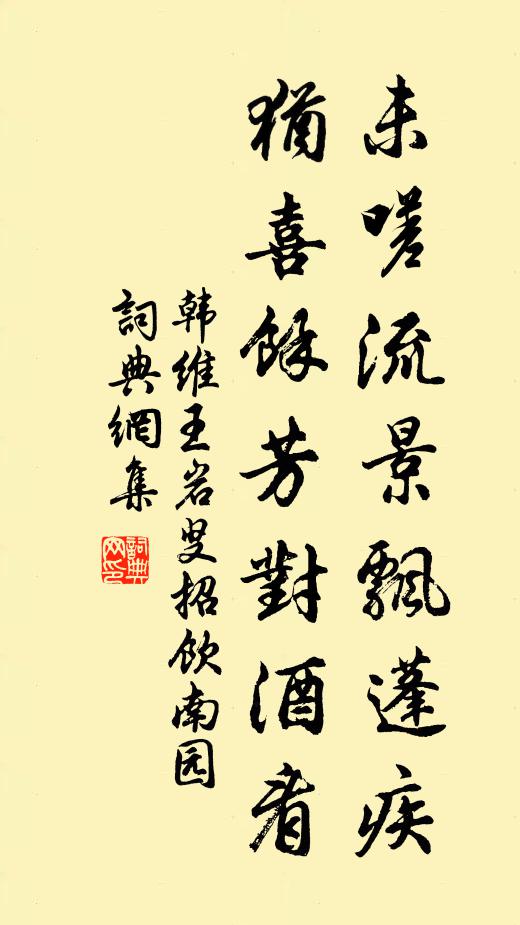 未嗟流景飄蓬疾
猶喜餘芳對酒看
韩维王岩叟招饮南园
詞典網集
詞典网印